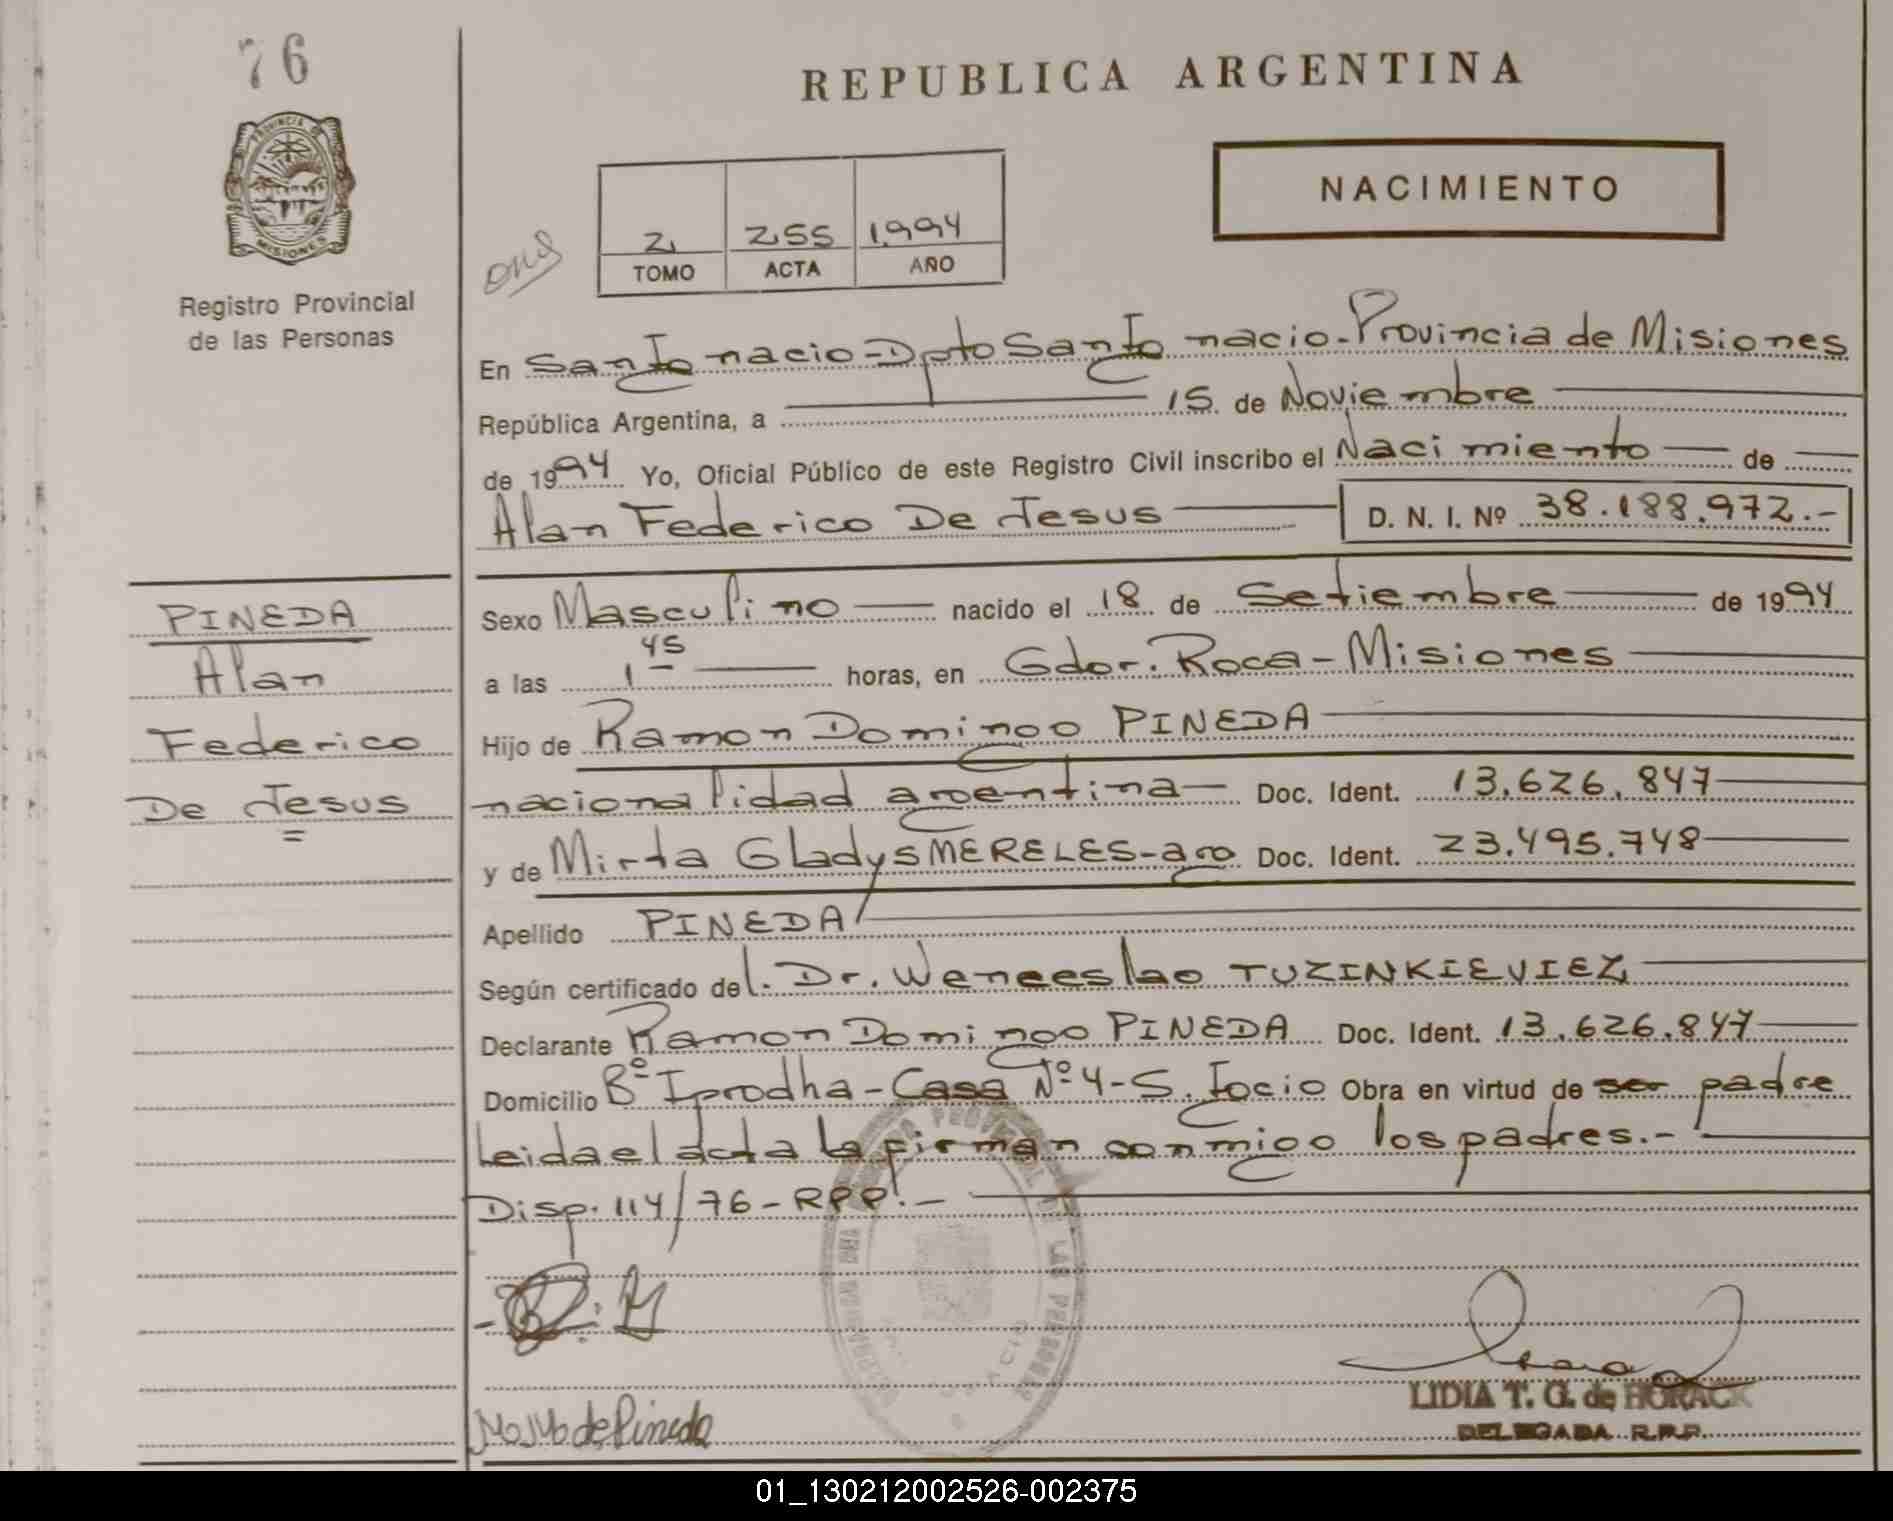 76
REPUBLICA ARGENTINA
PROVINCIA DE
MISIONES
NACIMIENTO
2 255 1.994
TOMO ACTA AÑO
Registro Provincial
de las Personas
En San Ignacio - Dpto San Ignacio - Provincia de Misiones
República Argentina, a 15 de Noviembre
de 1994 Yo, Oficial Público de este Registro Civil inscribo el Nacimiento de
Alan Federico De Jesus D. N. I. Nº 38.188.972.-
PINEDA
Alan
Federico
De Jesus
Sexo Masculino nacido el 18 de Setiembre de 1994
a las 1 45 horas, en Gdor. Roca - Misiones
Hijo de Ramon Domingo PINEDA
nacionalidad argentina Doc. Ident. 13.626.847
y de Mirta Gladys MERELES - arg Doc. Ident. 23.495.748
Apellido PINEDA
Según certificado del. Dr. Wenceslao TUZINKIEVIEZ
Declarante Ramon Domingo PINEDA Doc. Ident. 13.626.847
Domicilio Bº Iprodha - Casa Nº 4 - S. Igcio Obra en virtud de ser padre
Leida el acta la firman conmigo los padres.-
Disp. 114/76 - RPP.-
de Pineda
LIDIA T. G. de HORACK
DELEGADA R.P.P.
01_130212002526-002375